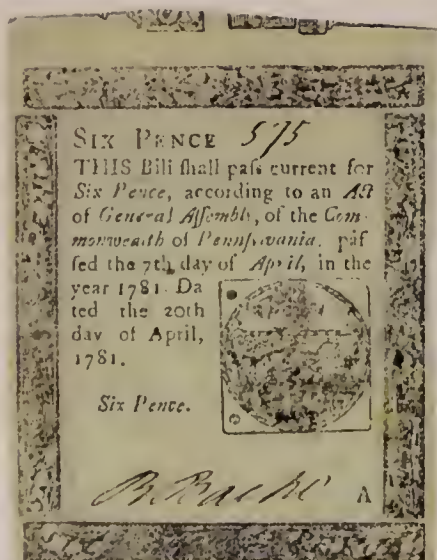 SIX PENCE 575
THIS Bill ſhall paſs current for
Six Pence, according to an Act
of General Aſſembly, of the Com-
monwealth of Pennſylvania, paſ
ſed the 7th day of April, in the
year 1781. Da
ted the 20th
day of April,
1781.
Six Pence.
B. Bache A